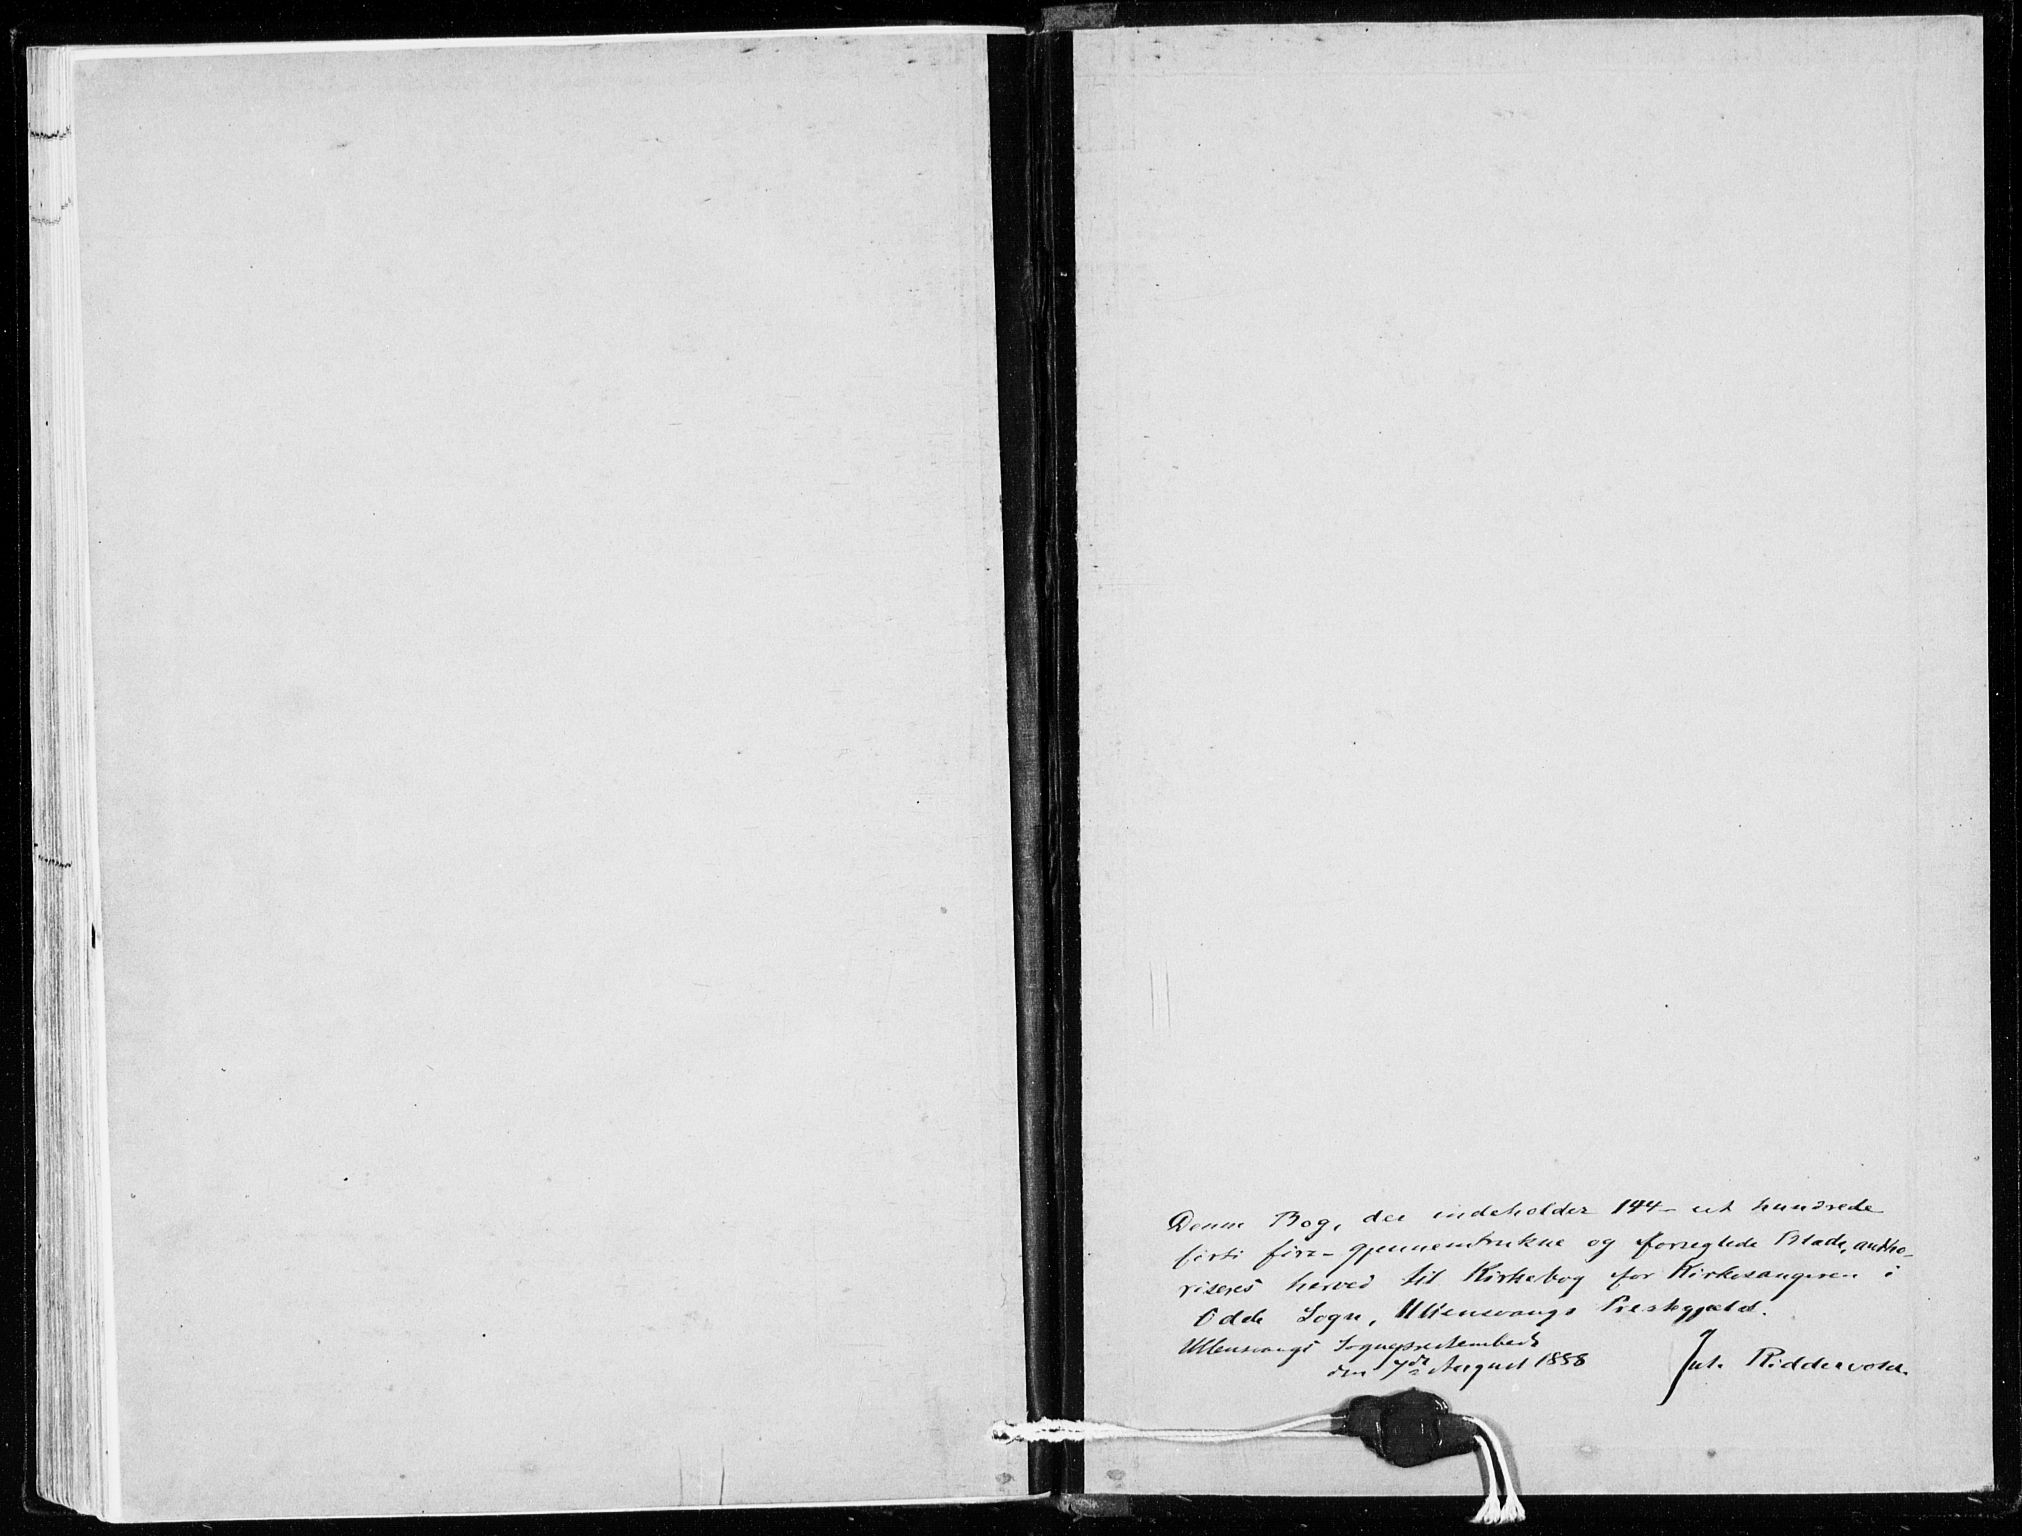 Denne Bog, der indeholder 144 - et hundrede
førti fire - gjennemtrukne og forseglede Blade, autho-
riseres herved til Kirkebog for Kirkesangeren i
Odde Sogn, Ullensvangs Prestegjæld.
Ullensvangs Sogneprestembede
den 7de August 1888 Jul. Riddervold